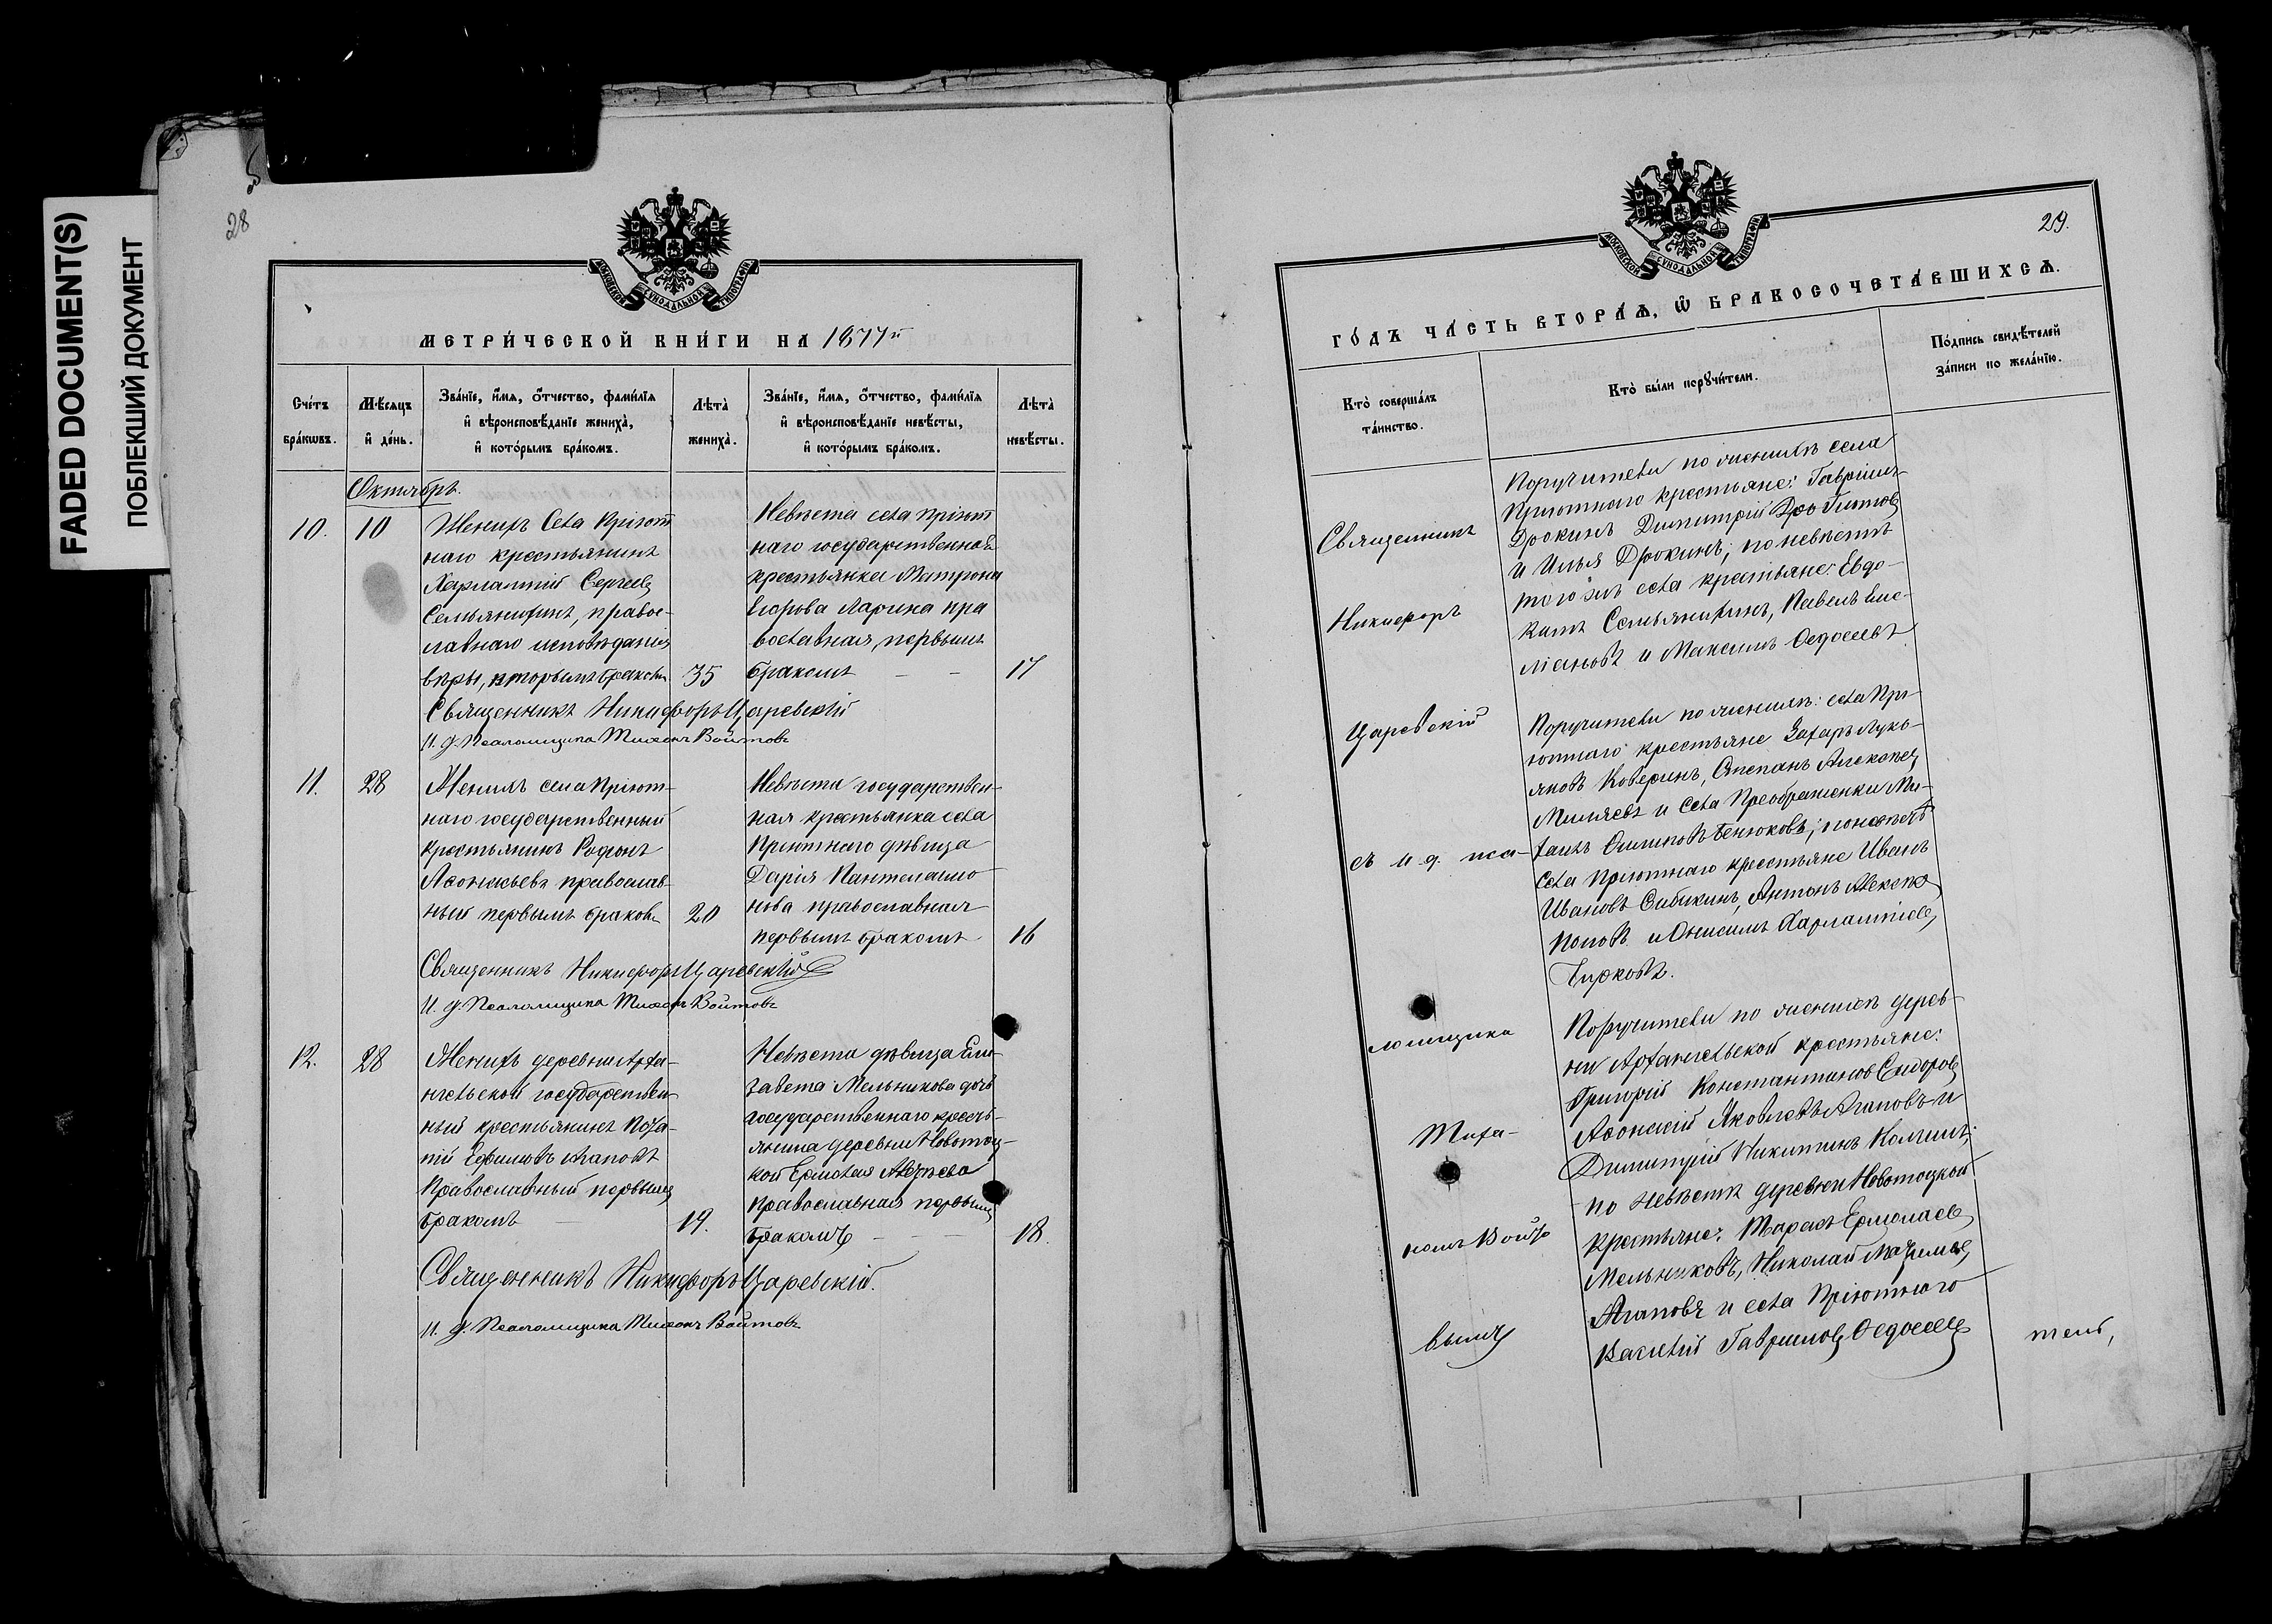 FADED DOCUMENT(S)
ПОБЛЕКШИЙ ДОКУМЕНТ
28
МОСКОВСКОЙ СѴНОДАЛЬНОЙ ТИПОГРАФІИ
МЕТРИ́ЧЕСКОЙ КНИ́ГИ НА 1877й
Сче́тъ бра́кѡвъ.
Мѣ́сяцъ и҆ де́нь.
Зва́нїе, и҆́мя, ѻ҆́тчество, фами́лїя и҆ вѣроисповѣ́данїе жениха̀, и҆ кото́рымъ бра́комъ.
Лѣта̀ жениха̀.
Зва́нїе, и҆́мя, ѻ҆́тчество, фами́лїя и҆ вѣроисповѣ́данїе невѣ́сты, и҆ кото́рымъ бра́комъ.
Лѣта̀ невѣ́сты.
Октябрь.
10.
10
Женихъ Села Пріют
наго крестьянинъ
Харлампій Сергеев
Семьянихинъ, правос-
лавнаго исповѣданія
вѣры, вторымъ бракомъ
35
Невѣста села Пріют
наго государственная
крестьянка Матрона
Егорова Ларина пра
вославная, первымъ
бракомъ
17
Священникъ Никифоръ Царевскій
И. д. Псаломщика Тихонъ Войтовъ
11.
28
Женихъ села Пріют-
наго государственный
крестьянинъ Родіонъ
Афонасьевъ православ-
ный первымъ бракомъ
20
Невѣста государствен-
ная крестьянка села
Пріютнаго дѣвица
Дарія Пантелеимо
нова православная
первымъ бракомъ
16
Священникъ Никифоръ Царевскій
И. д. Псаломщика Тихонъ Войтовъ
12.
28
Женихъ деревни Арха-
нгельской государствен-
ный крестьянинъ
Ефимовъ Агаповъ
Православный первымъ
бракомъ
19.
Невѣста дѣвица Ели-
завета Мельникова дочь
государственнаго кресть-
янина деревни Новотоц-
кой Ермолая
Православная первымъ
бракомъ
18.
Священникъ Никифоръ Царевскій.
И. д. Псаломщика Тихонъ Войтовъ
29.
МОСКОВСКОЙ СѴНОДАЛЬНОЙ ТИПОГРАФІИ
ГО́ДЪ ЧА́СТЬ ВТОРА́Ѧ, Ѽ БРАКОСОЧЕТА́ВШИХСѦ.
Кто̀ соверша́лъ та́инство.
Кто̀ бы́ли порꙋчи́тели.
По́дпись свидѣ́телей за́писи по жела́нїю.
Священникъ
Никифоръ
Царевскій
съ и. д. пса-
ломщика
Тихо-
номъ Войто
вымъ
Поручители по женихѣ села
Пріютнаго крестьяне: Гавріилъ
Дрокинъ Димитрій Титов
и Илья Дрокинъ; по невѣстѣ
тогожъ села крестьяне: Евдо-
кимъ Семьянихинъ, Павелъ Еме-
ліановъ и Максимъ Ѳедосеевъ
Поручители по женихѣ: села Прі-
ютнаго крестьяне Захаръ Лукь-
яновъ Коверинъ, Степанъ Алексѣев
и села Преображенки Ми-
хаилъ; по невѣстѣ
села Пріютнаго крестьяне Иванъ
Ивановъ Сибикинъ, Антонъ
Поповъ и Онисимъ Харлампіев
Поручители по женихѣ дерев-
ни Архангельской крестьяне:
Григорій Константинов Сидоров
Афонасій Яковлевъ Агаповъ и
Димитрій Никитинъ
по невѣстѣ деревни Новотоцкой
крестьяне: Тарасъ Ермолаев
Мельниковъ, Николай
Агаповъ и села Пріютнаго
Василій Гаврилов Ѳедосеев